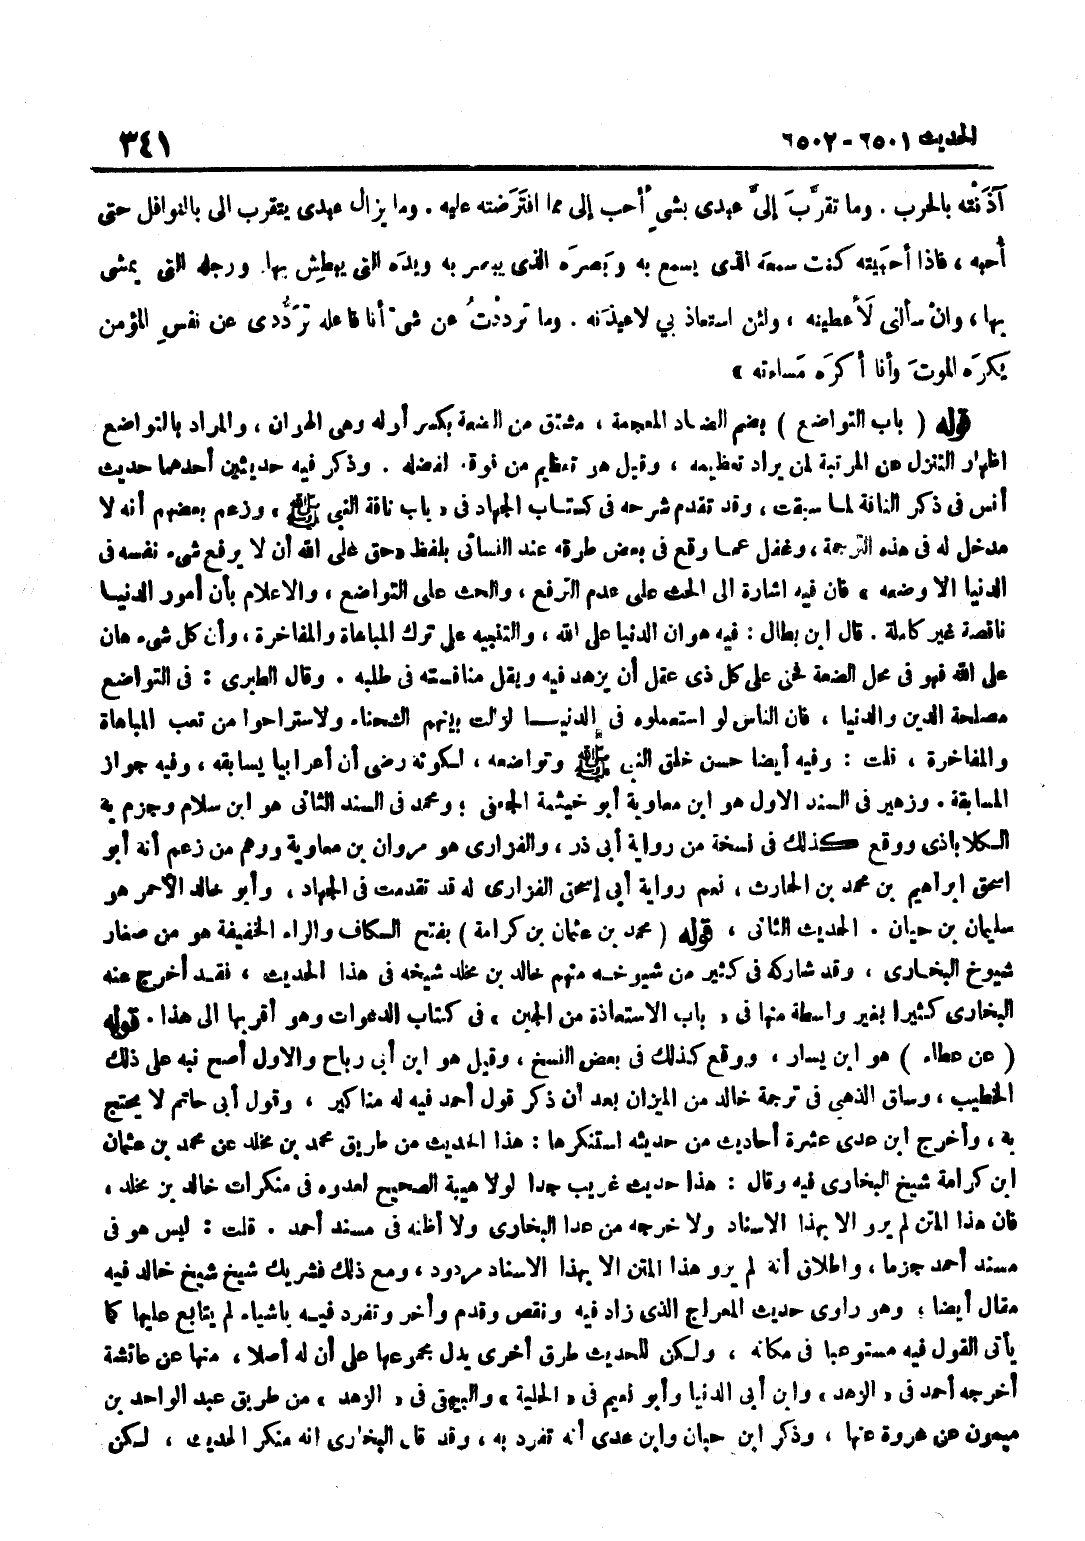 الحديث ٦٥٠١ - ٦٥٠٢
٣٤١
آذَنْته بالحرب . وما تقرَّبَ إلىَّ عبدى بشىءٍ أحب إلى مما افتَرَضته عليه . وما يزال عبدى يتقرب الى بالنوافل حتى
أُحبه ، فاذا أحببته كنت سمعَه الذى يسمع به وبَصرَه الذى يبصر به ويدَه التى يبطِش بها. ورجله التى يمشى
بها ، وانْ سألنى لَأعطينه ، ولئن استعاذ بي لاعيذنه . وما تردَّدْتُ عن شىْ أنا فاعله تَرَدُّدى عن نفسِ المؤمن
يَكرَه الموتَ وأنا أكرَه مَساءته »
قوله ( باب التواضع ) بضم الضاد المعجمة ، مشتق من الضعة بكسر أوله وهى الهوان ، والمراد بالتواضع
اظهار التنزل عن المرتبة لمن يراد تعظيمه ، وقيل هو تعظيم من فوقه لفضله . وذكر فيه حديثين أحدهما حديث
أنس فى ذكر الناقة لما سبقت ، وقد تقدم شرحه فى كتاب الجهاد فى « باب ناقة النبى ﷺ » وزعم بعضهم أنه لا
مدخل له فى هذه الترجمة ، وغفل عما وقع فى بعض طرقه عند النسائى بلفظ « حق على الله أن لا يرفع شىء نفسه فى
الدنيا الا وضعه » فان فيه اشارة الى الحث على عدم الترفع ، والحث على التواضع ، والاعلام بأن أمور الدنيا
ناقصة غير كاملة . قال ابن بطال : فيه هوان الدنيا على الله ، والتنبيه على ترك المباهاة والمفاخرة ، وأن كل شىء هان
على الله فهو فى محل الضعة فحق على كل ذى عقل أن يزهد فيه ويقل منافسته فى طلبه . وقال الطبرى : فى التواضع
مصلحة الدين والدنيا ، فان الناس لو استعملوه فى الدنيا لزالت بينهم الشحناء ولاستراحوا من تعب المباهاة
والمفاخرة . قلت : وفيه أيضا حسن خلق النبى ﷺ وتواضعه ، لكونه رضى أن أعرابيا يسابقه ، وفيه جواز
المسابقة . وزهير فى السند الاول هو ابن معاوية أبو خيثمة الجعفى ؛ ومحمد فى السند الثانى هو ابن سلام وجزم به
الكلاباذى ووقع كذلك فى نسخة من رواية أبى ذر ، والفزارى هو مروان بن معاوية ووهم من زعم أنه أبو
اسحق ابراهيم بن محمد بن الحارث ، نعم رواية أبى إسحق الفزارى له قد تقدمت فى الجهاد ، وأبو خالد الأحمر هو
سليمان بن حيان . الحديث الثانى ، قوله ( محمد بن عثمان بن كرامة ) بفتح الكاف والراء الخفيفة هو من صغار
شيوخ البخارى ، وقد شاركه فى كثير من شيوخه منهم خالد بن مخلد شيخه فى هذا الحديث ، فقد أخرج عنه
البخارى كثيرا بغير واسطة منها فى « باب الاستعاذة من الجبن » فى كتاب الدعوات وهو أقربها الى هذا . قوله
( عن عطاء ) هو ابن يسار ، ووقع كذلك فى بعض النسخ ، وقيل هو ابن أبى رباح والاول أصح نبه على ذلك
الخطيب ، وساق الذهبى فى ترجمة خالد من الميزان بعد أن ذكر قول أحمد فيه له مناكير ، وقول أبى حاتم لا يحتج
به ، وأخرج ابن عدى عشرة أحاديث من حديثه استنكرها : هذا الحديث من طريق محمد بن مخلد عن محمد بن عثمان
ابن كرامة شيخ البخارى فيه وقال : هذا حديث غريب جدا لولا هيبة الصحيح لعدوه فى منكرات خالد بن مخلد ،
فان هذا المتن لم يرو الا بهذا الاسناد ولا خرجه من عدا البخارى ولا أظنه فى مسند أحمد . قلت : ليس هو فى
مسند أحمد جزما ، واطلاق أنه لم يرو هذا المتن الا بهذا الاسناد مردود ، ومع ذلك فشريك شيخ شيخ خالد فيه
مقال أيضا ؛ وهو راوى حديث المعراج الذى زاد فيه ونقص وقدم وأخر وتفرد فيه باشياء لم يتابع عليها كما
يأتى القول فيه مستوعبا فى مكانه ، ولكن للحديث طرق أخرى يدل مجموعها على أن له أصلا ، منها عن عائشة
أخرجه أحمد فى « الزهد » وابن أبى الدنيا وأبو نعيم فى « الحلية » والبيهقى فى « الزهد » من طريق عبد الواحد بن
ميمون عن عروة عنها ، وذكر ابن حبان وابن عدى أنه تفرد به ، وقد قال البخارى انه منكر الحديث ، لكن